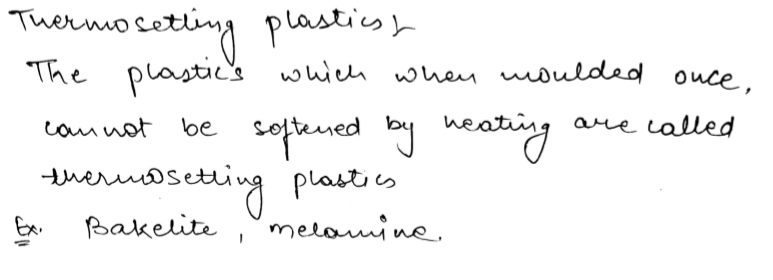 Thermosetting plastics :-
The plastics which when moulded once,
cannot be softened by heating are called
thermosetting plastics
Ex. Bakelite, melamine.